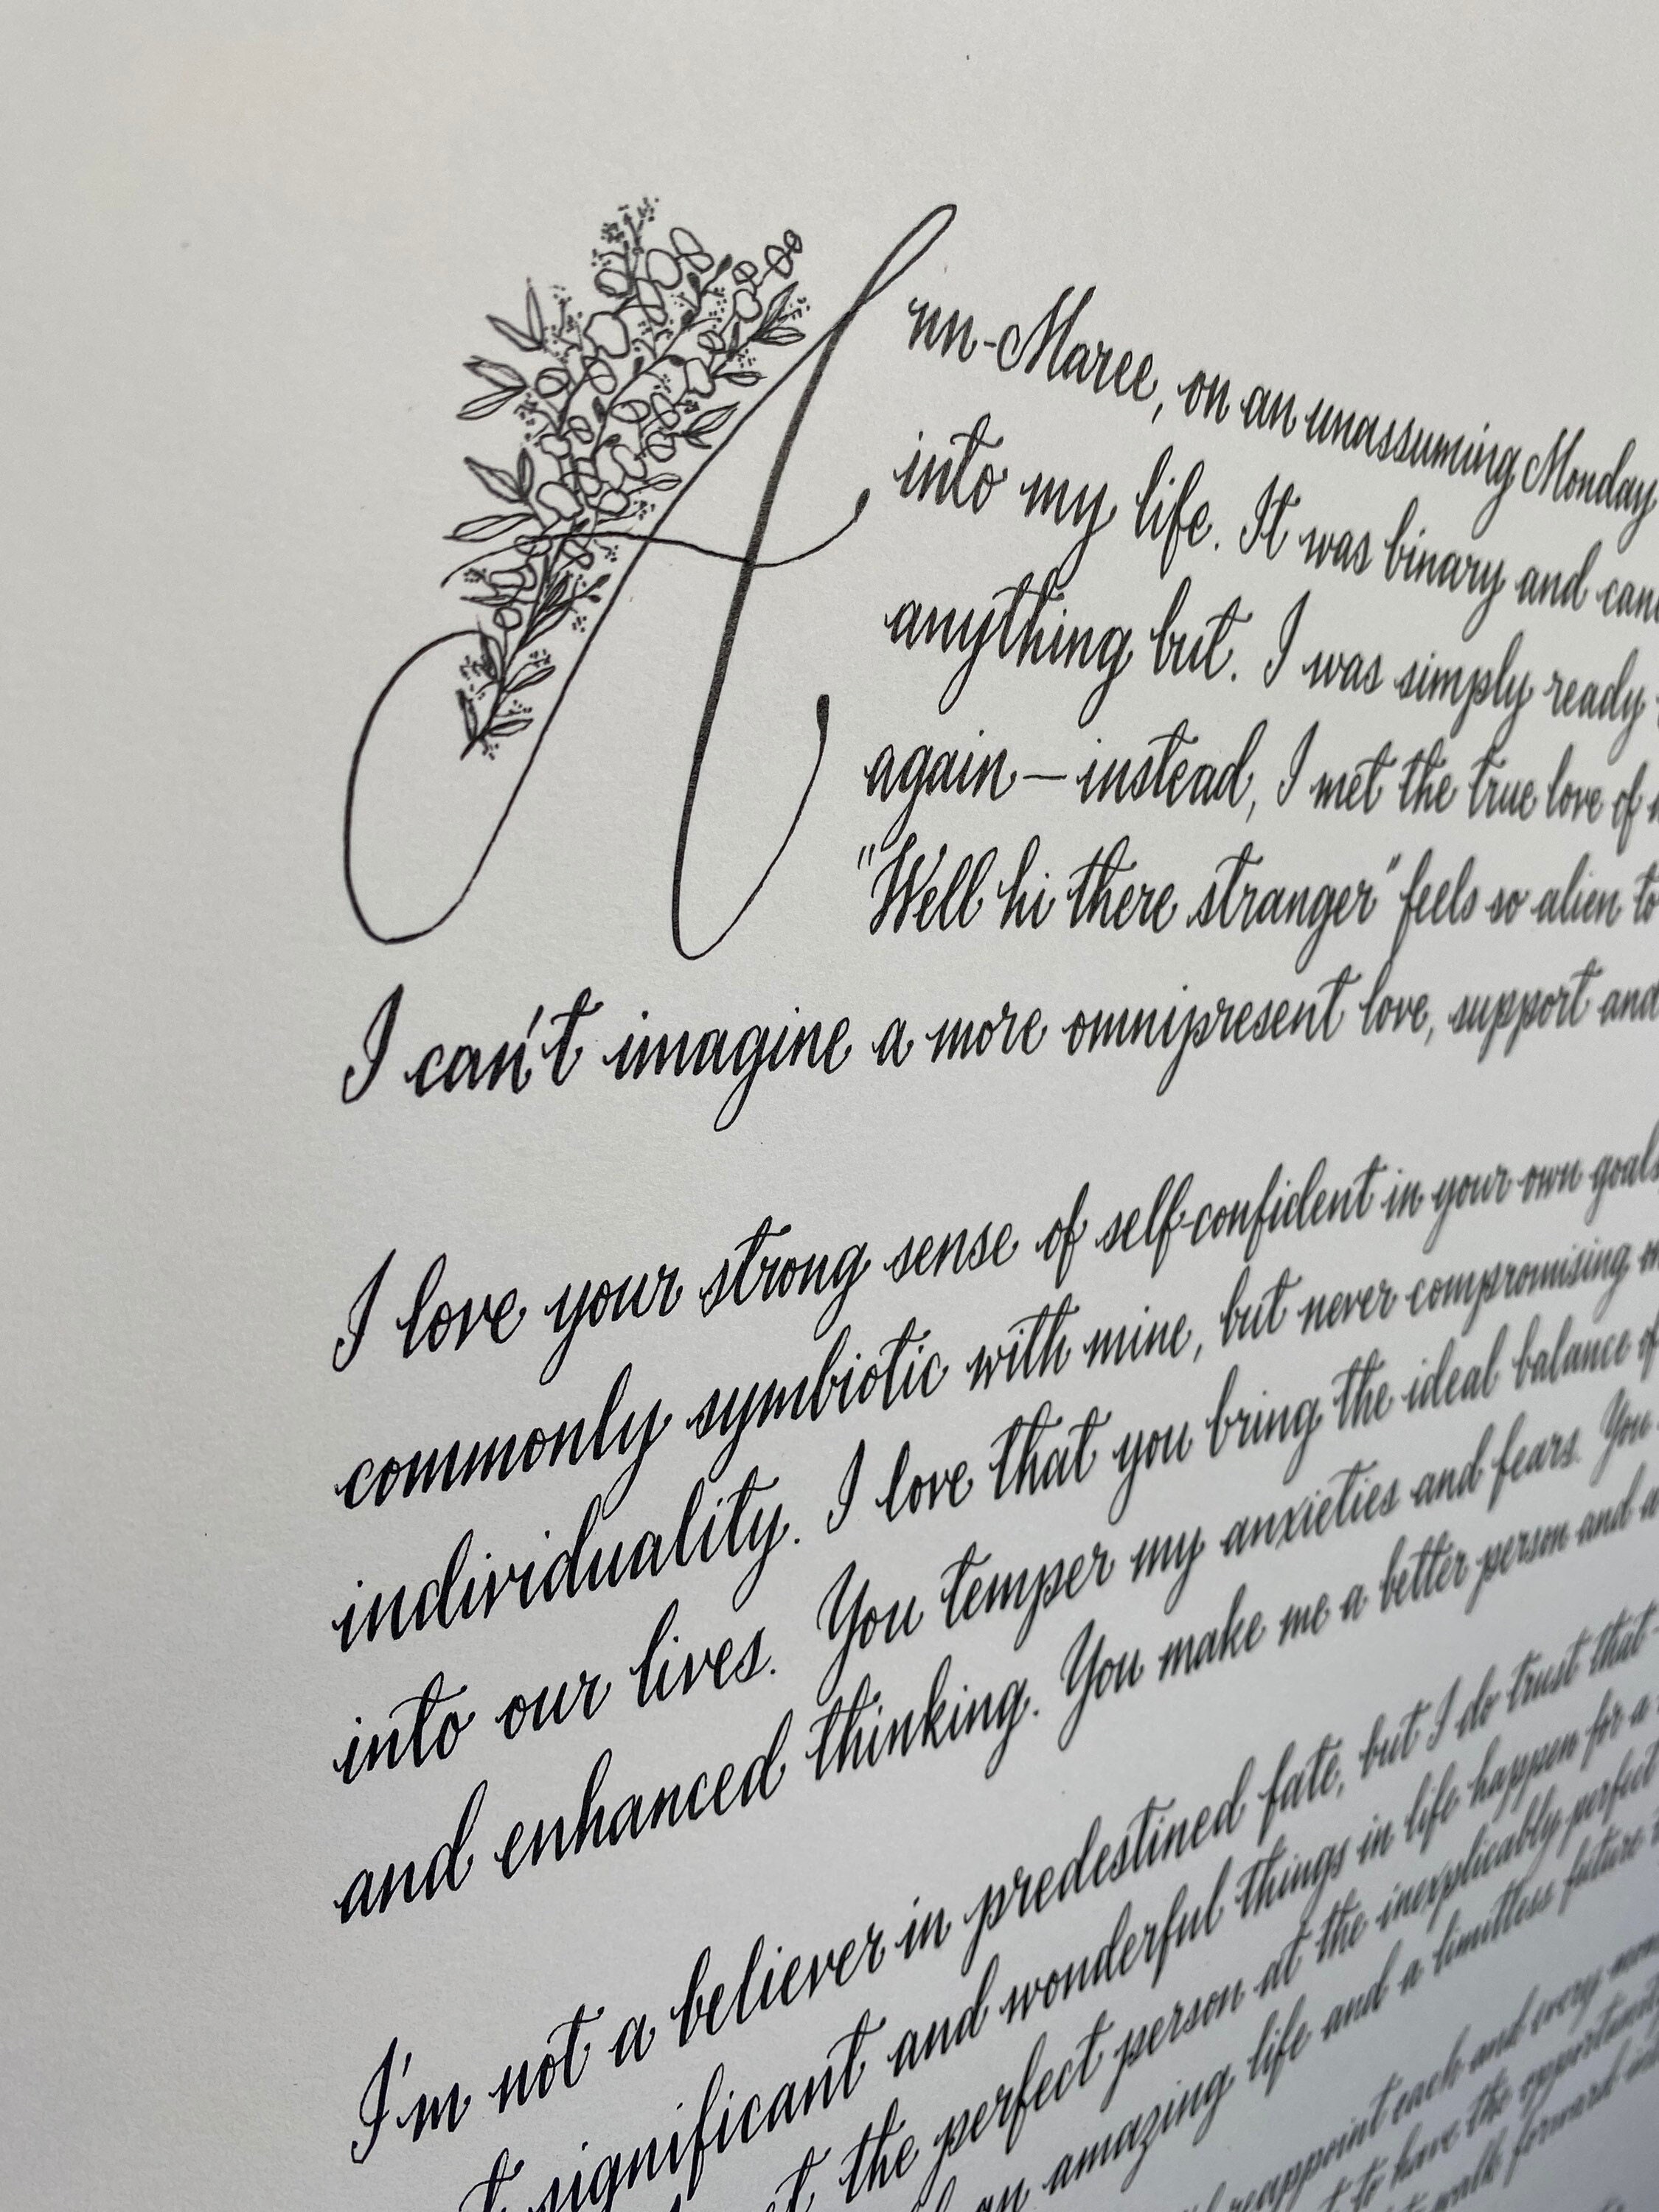 Ann-Maree, on an unassuming Monday
into my life. It was binary and
anything but. I was simply ready
again — instead, I met the true love of
"Well hi there stranger" feels so alien to
I can't imagine a more omnipresent love, support and
I love your strong sense of self-confident in your own goals
commonly symbiotic with mine, but never compromising
individuality. I love that you bring the ideal balance of
into our lives. You temper my anxieties and fears. You
and enhanced thinking. You make me a better person and
I'm not a believer in predestined fate, but I do trust that
significant and wonderful things in life happen for a
the perfect person at the inexplicably perfect
amazing life and a limitless future
each and every
to have the opportunity
walk forward